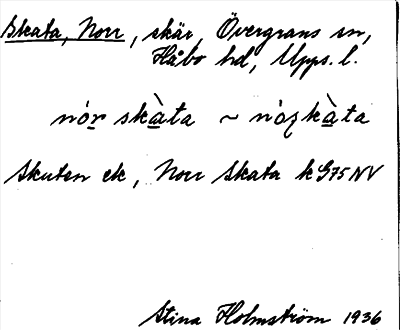 Skata, Norr, skär, Övergrans sn,
Håbo hd, Upps. l.
nór skàta ~ nózkàta
Skuten ek, Norr Skata k G75 NV
Stina Holmström 1936